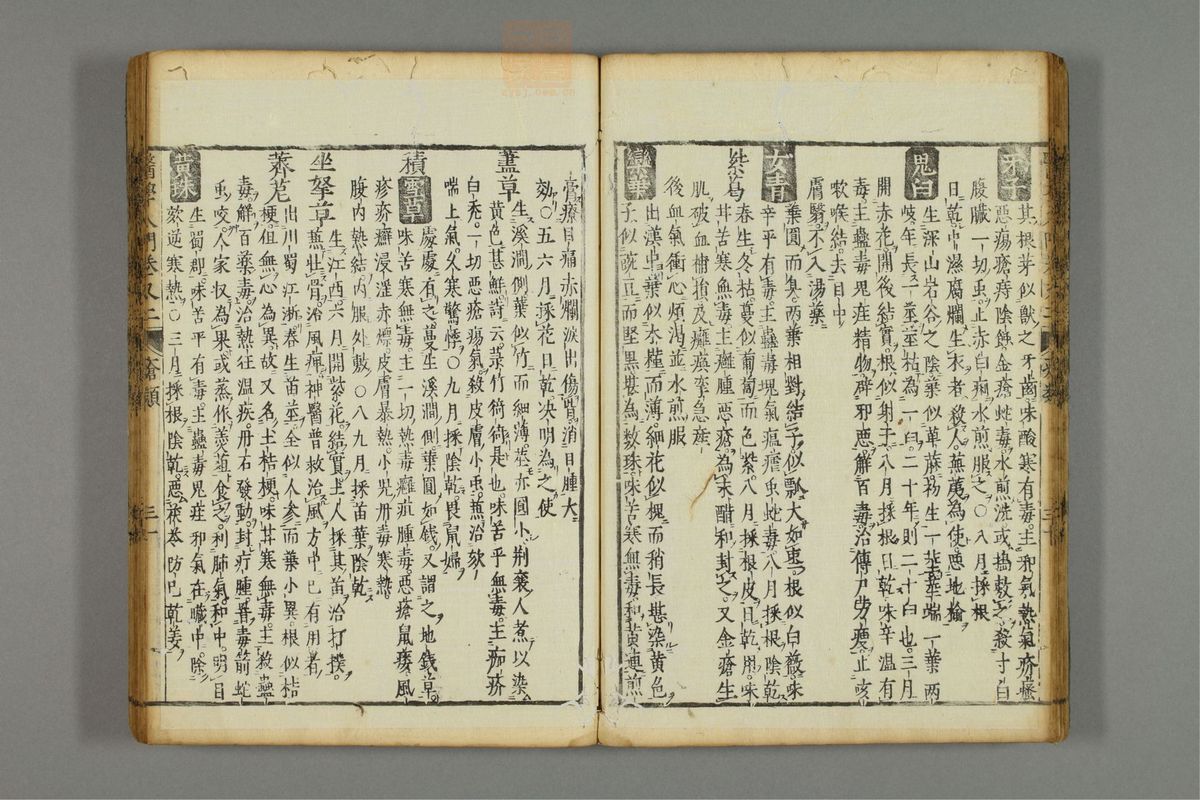 牙子
其根芽似獸之牙齒味酸寒有毒主邪氣熱氣疥癢
惡瘍瘡痔陰蝕金瘡蛇毒水煎洗或搗敷之殺寸白
腹臟一切虫止赤白痢水煎服之〇八月採根
日乾中濕腐爛生衣者殺人蕪荑為使惡地榆
鬼臼
生深山岩谷之陰葉似蓖麻初生一莖莖端一葉兩
岐年長一莖莖枯為一臼二十年則二十臼也三月
開赤花開後結實根似射干八月採根日乾味辛溫有
毒主蠱毒鬼疰精物辟邪惡解百毒治傳尸勞瘵止咳
嗽喉結去目中
膚翳不入湯藥
女青
葉圓而臭兩葉相對結子似瓢大如棗根似白薇味
辛平有毒主蠱毒塊氣瘟瘧虫蛇毒八月採根陰乾
紫葛
春生冬枯蔓似葡萄而色紫八月採根皮日乾用味
甘苦寒無毒主癰腫惡瘡為末醋和封之又金瘡生
肌破血補損及癱瘓攣急產
後血氣衝心煩渴並水煎服
欒華
出漢中葉似木槿而薄細花似槐而稍長堪染黃色
子似豌豆而堅黑堪為數珠味苦寒無毒和黃連煎
膏療目痛赤爛淚出傷眥消目腫大
効〇五六月採花日乾決明為之使
藎草
生溪澗側葉似竹而細薄莖亦圓小荆襄人煮以染
黃色甚鮮詩云菉竹猗猗是也味苦平無毒主痂疥
白禿一切惡瘡瘍氣殺皮膚小虫蕪欬
喘上氣久寒驚悸〇九月採陰乾畏鼠婦
積雪草
味苦寒無毒主一切熱毒癰疽腫毒惡瘡鼠瘻風
疹疥癬浸淫赤熛皮膚暴熱小兒丹毒寒熱
腹內熱結內服外敷〇八九月採苗葉陰乾
處處有之蔓生溪澗側葉圓如錢又謂之地錢草
坐拏草
生江西六月開紫花結實土人採其苗治打撲
兼壯骨治風痺神醫普救治風方中已有用者
薺苨
出川蜀江浙春生苗莖全似人參而葉小異根似桔
梗但無心為異故又名土桔梗味甘寒無毒主殺蠱
毒解百藥毒治熱狂溫疾丹石發動封疔腫署毒箭蛇
虫咬人家收為果或蒸作羮葅食之利肺氣和中明目
黃環
生蜀郡味苦平有毒主蠱毒鬼疰邪氣在臟中除
欬逆寒熱〇三月採根陰乾惡茯苓防已乾姜
醫學入門卷